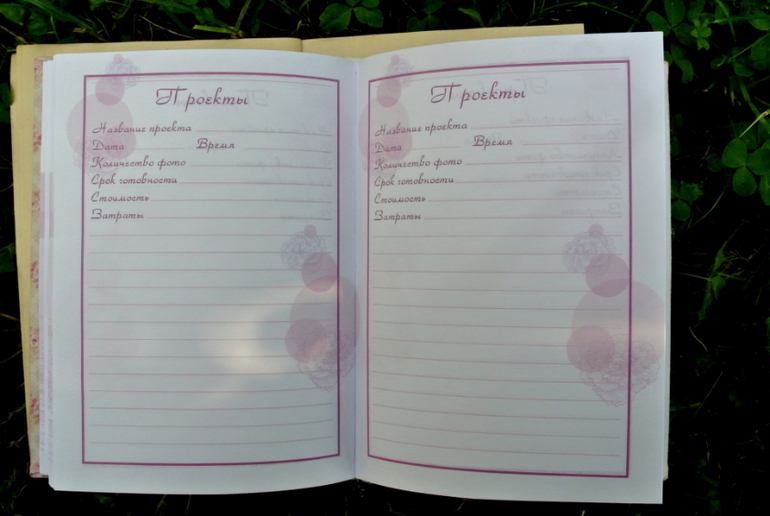 Проекты
Название проекта
Дата Время
Количество фото
Срок готовности
Стоимость
Затраты
Проекты
Название проекта
Дата Время
Количество фото
Срок готовности
Стоимость
Затраты